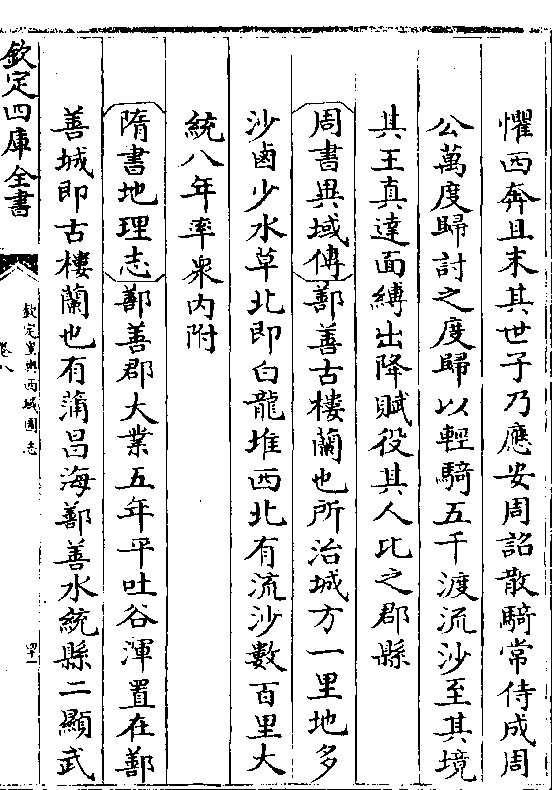 懼西奔且末其世子乃應安周詔散騎常侍成周
公萬度歸討之度歸以輕騎五千渡流沙至其境
其王真達面縛出降賦役其人比之郡縣
周書異域傳鄯善古樓蘭也所治城方一里地多
沙鹵少水草北即白龍堆西北有流沙數百里大
統八年率衆内附
隋書地理志鄯善郡大業五年平吐谷渾置在鄯
善城即古樓蘭也有蒲昌海鄯善水統縣二顯武
欽定四庫全書
欽定皇輿西域圖志
卷八